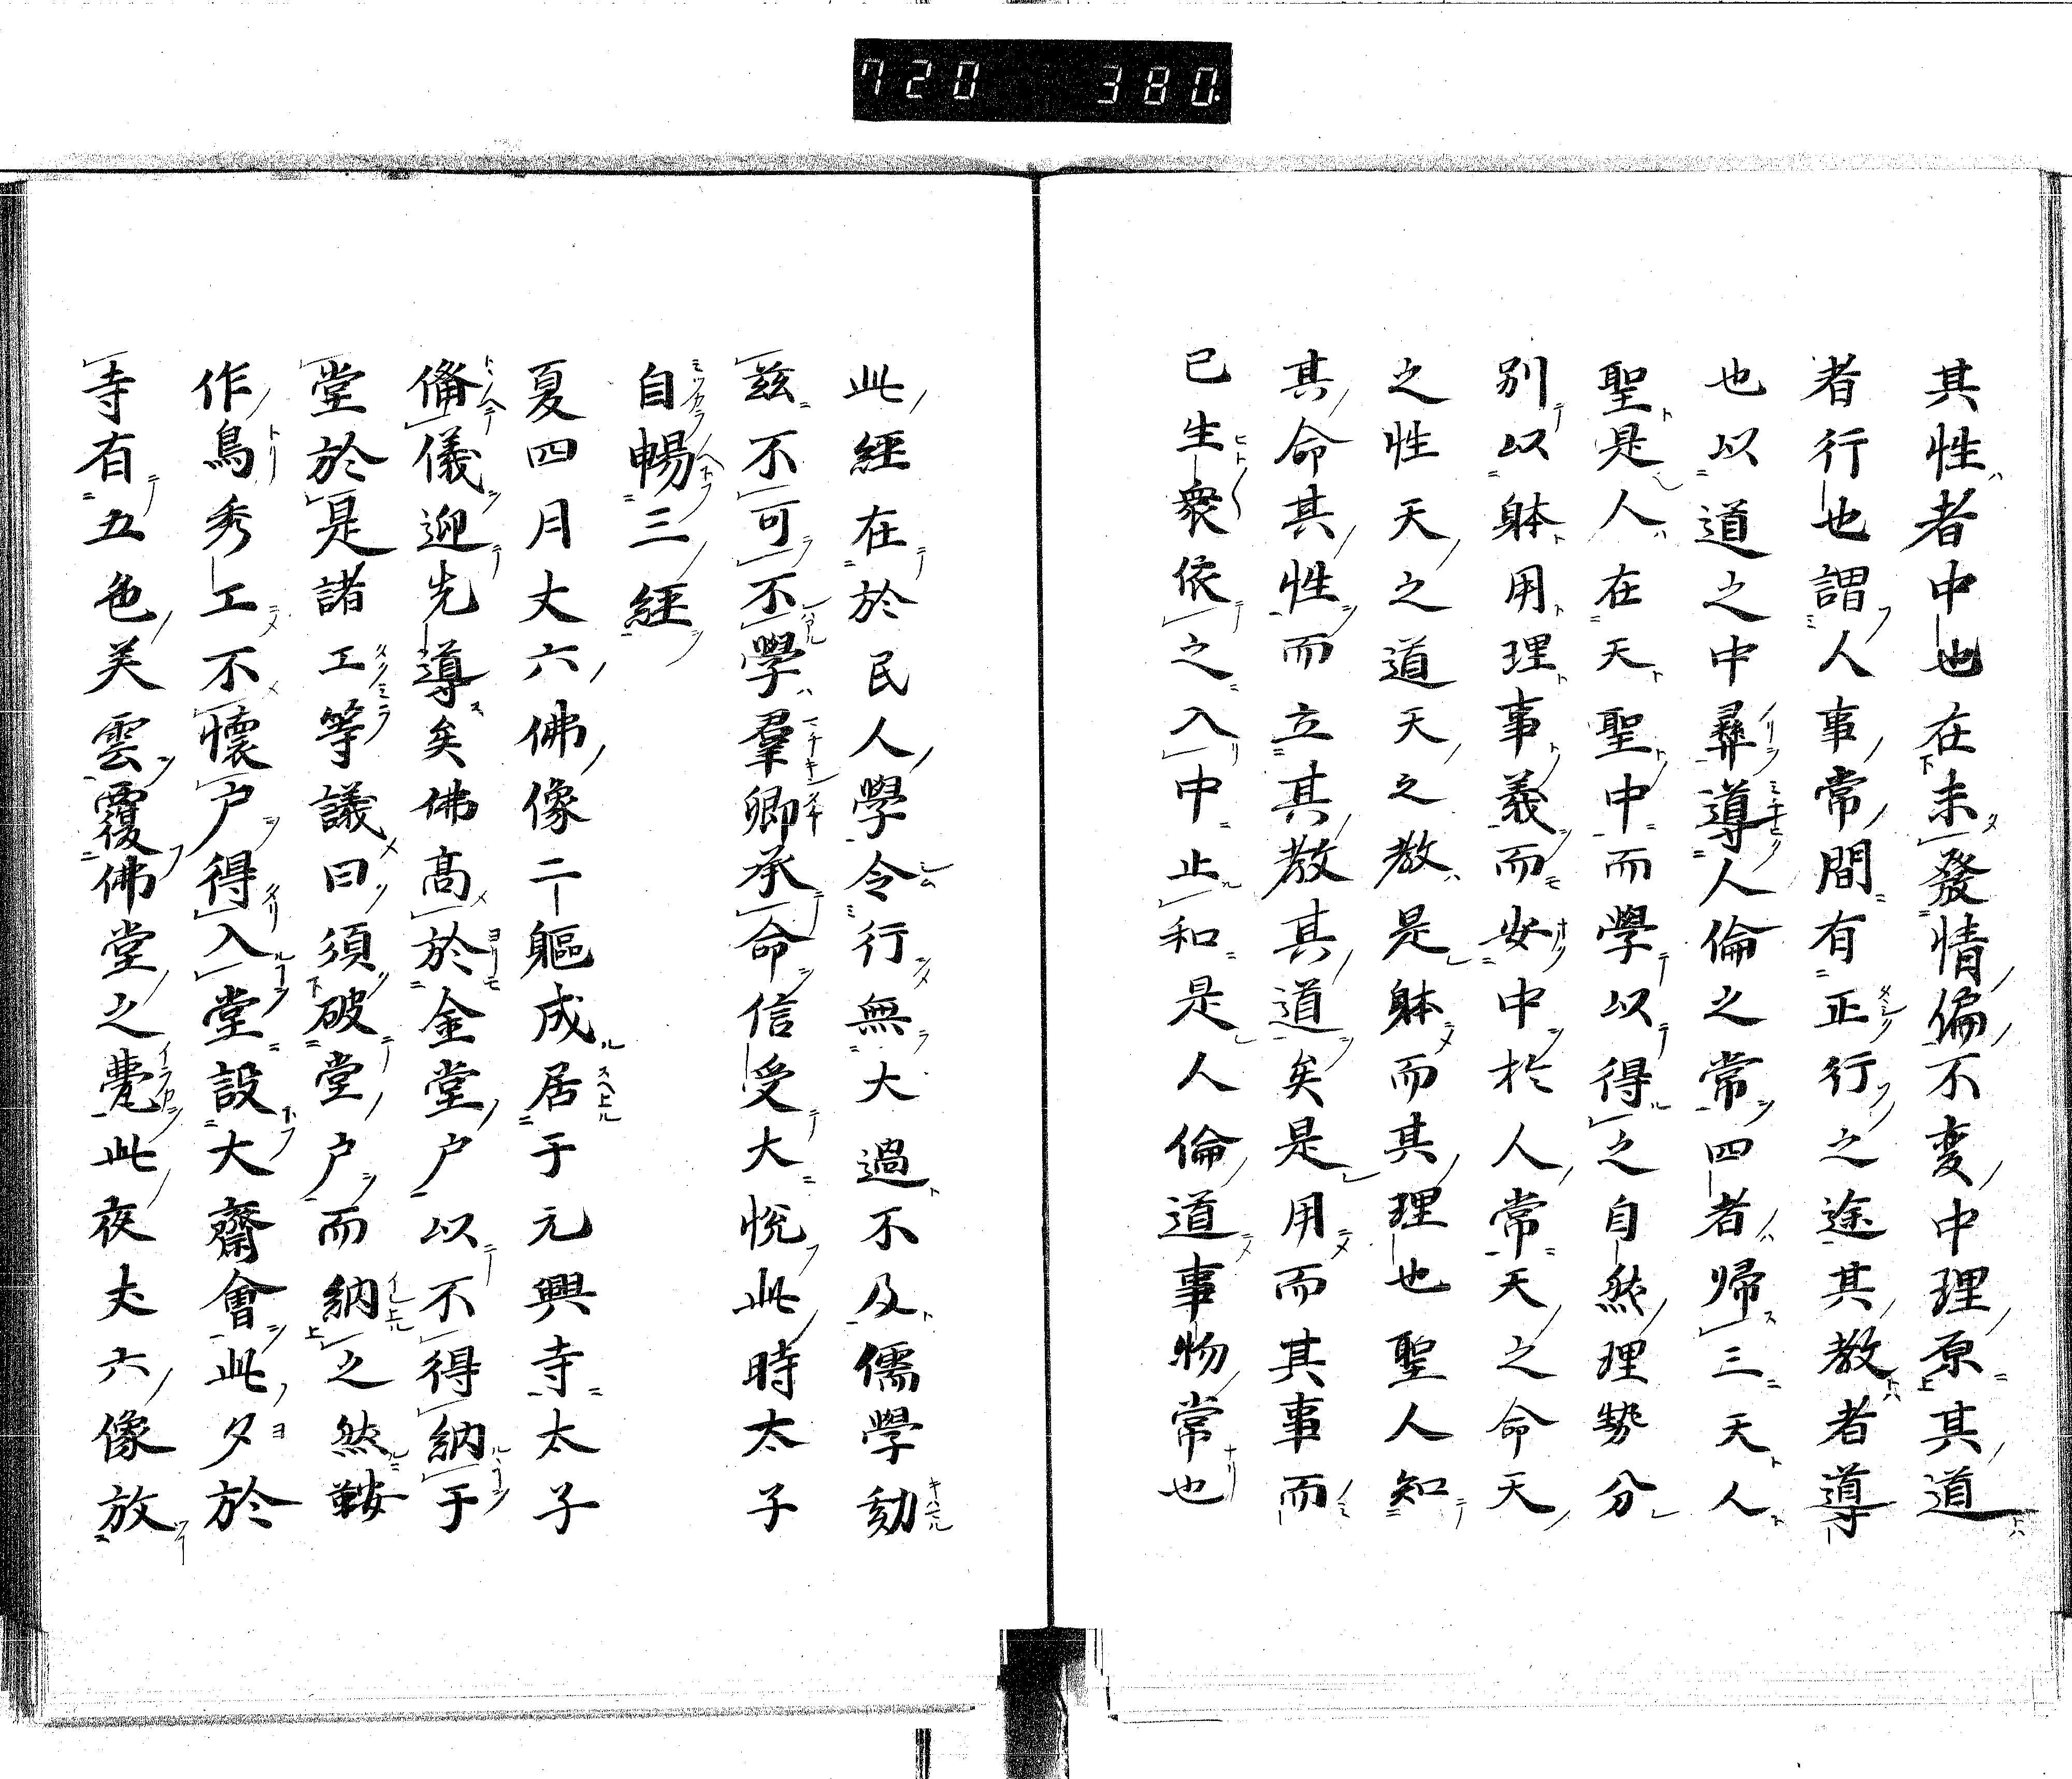 720 380
其性者中也在未發情偏不変中理原其道
者行也謂人事常間有正行之途其教者導
也以道之中彛導人倫之常四者帰三天人
聖是人在天聖中而學以得之自然理勢分
別以躰用理事義而安中於人常天之命天
之性天之道天之教是躰而其理也聖人知
其命其性而立其教其道矣是用而其事而
已生衆依之入中止和是人倫道事物常也
此經在於民人學令行無大過不及儒學動
茲不可不學羣卿承命信受大悦此時太子
自暢三經
夏四月丈六佛像二軀成居于元興寺太子
備儀迎先導矣佛高於金堂戸以不得納于
堂於是諸工等議曰須破堂戸而納之然鞍
作鳥秀工不懷戸得入堂設大齋會此夕於
寺有五色美雲覆佛堂之甍此夜丈六像放